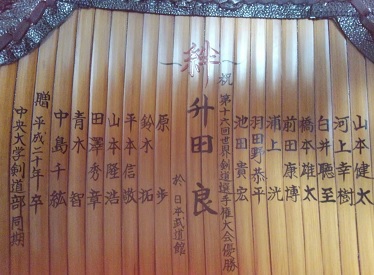 絆
山本健太
河上幸樹
白井聡至
橋本雄太
前田康博
浦上洸
羽田野恭平
池田貴宏
祝 第十六回世界剣道選手権大会優勝
升田良
於日本武道館
原歩
鈴木拓
平本信敬
山本隆浩
田澤秀章
青木智
中島千紘
平成二十年卒
贈 中央大学剣道部同期